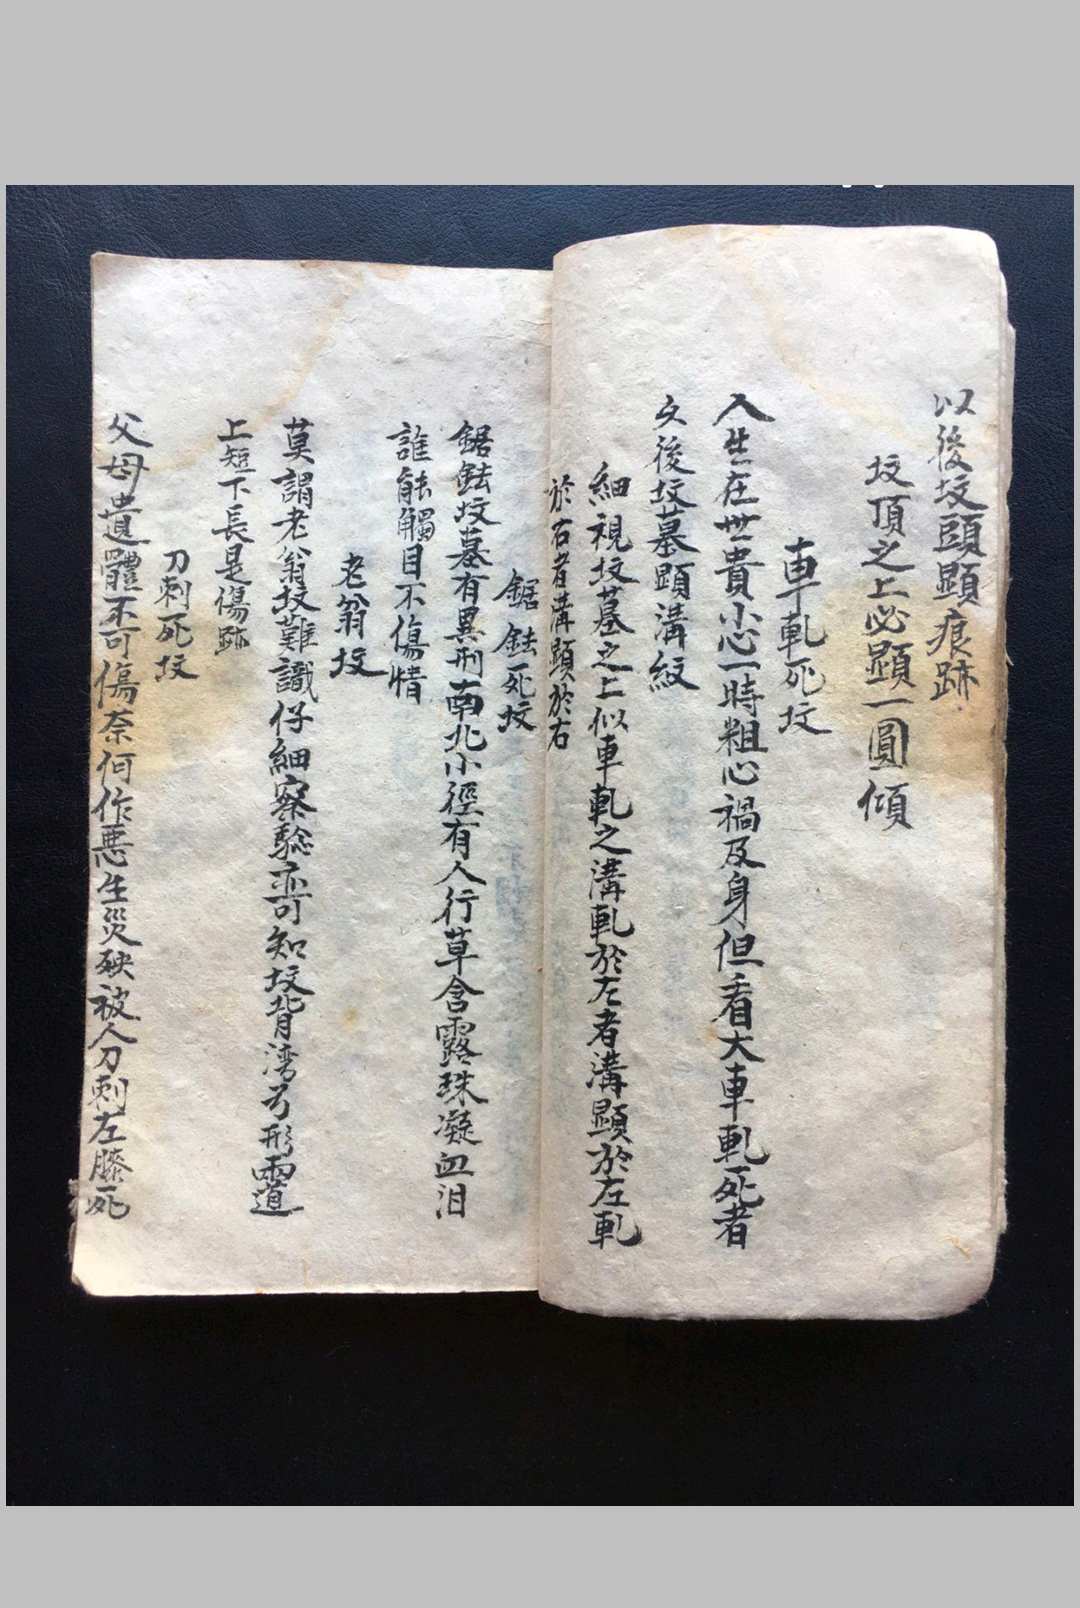 以後坟頭顕痕跡
坟頂之上必顕一圓傾
車軋死坟
人生在世貴小心一時粗心禍及身但看大車軋死者
久後坟墓顕溝紋
細視坟墓之上似車軋之溝軋於左者溝顕於左軋
於右者溝顕於右
鋸鉣死坟
鋸鉣坟墓有異刑南北小徑有人行草含露珠凝血泪
誰能觸目不傷情
老翁坟
莫謂老翁坟難識仔細察驗亦可知坟背湾弓形
上短下長是傷跡
刀刺死坟
父母遺體不可傷奈何作悪生災殃被人刀刺左膝死